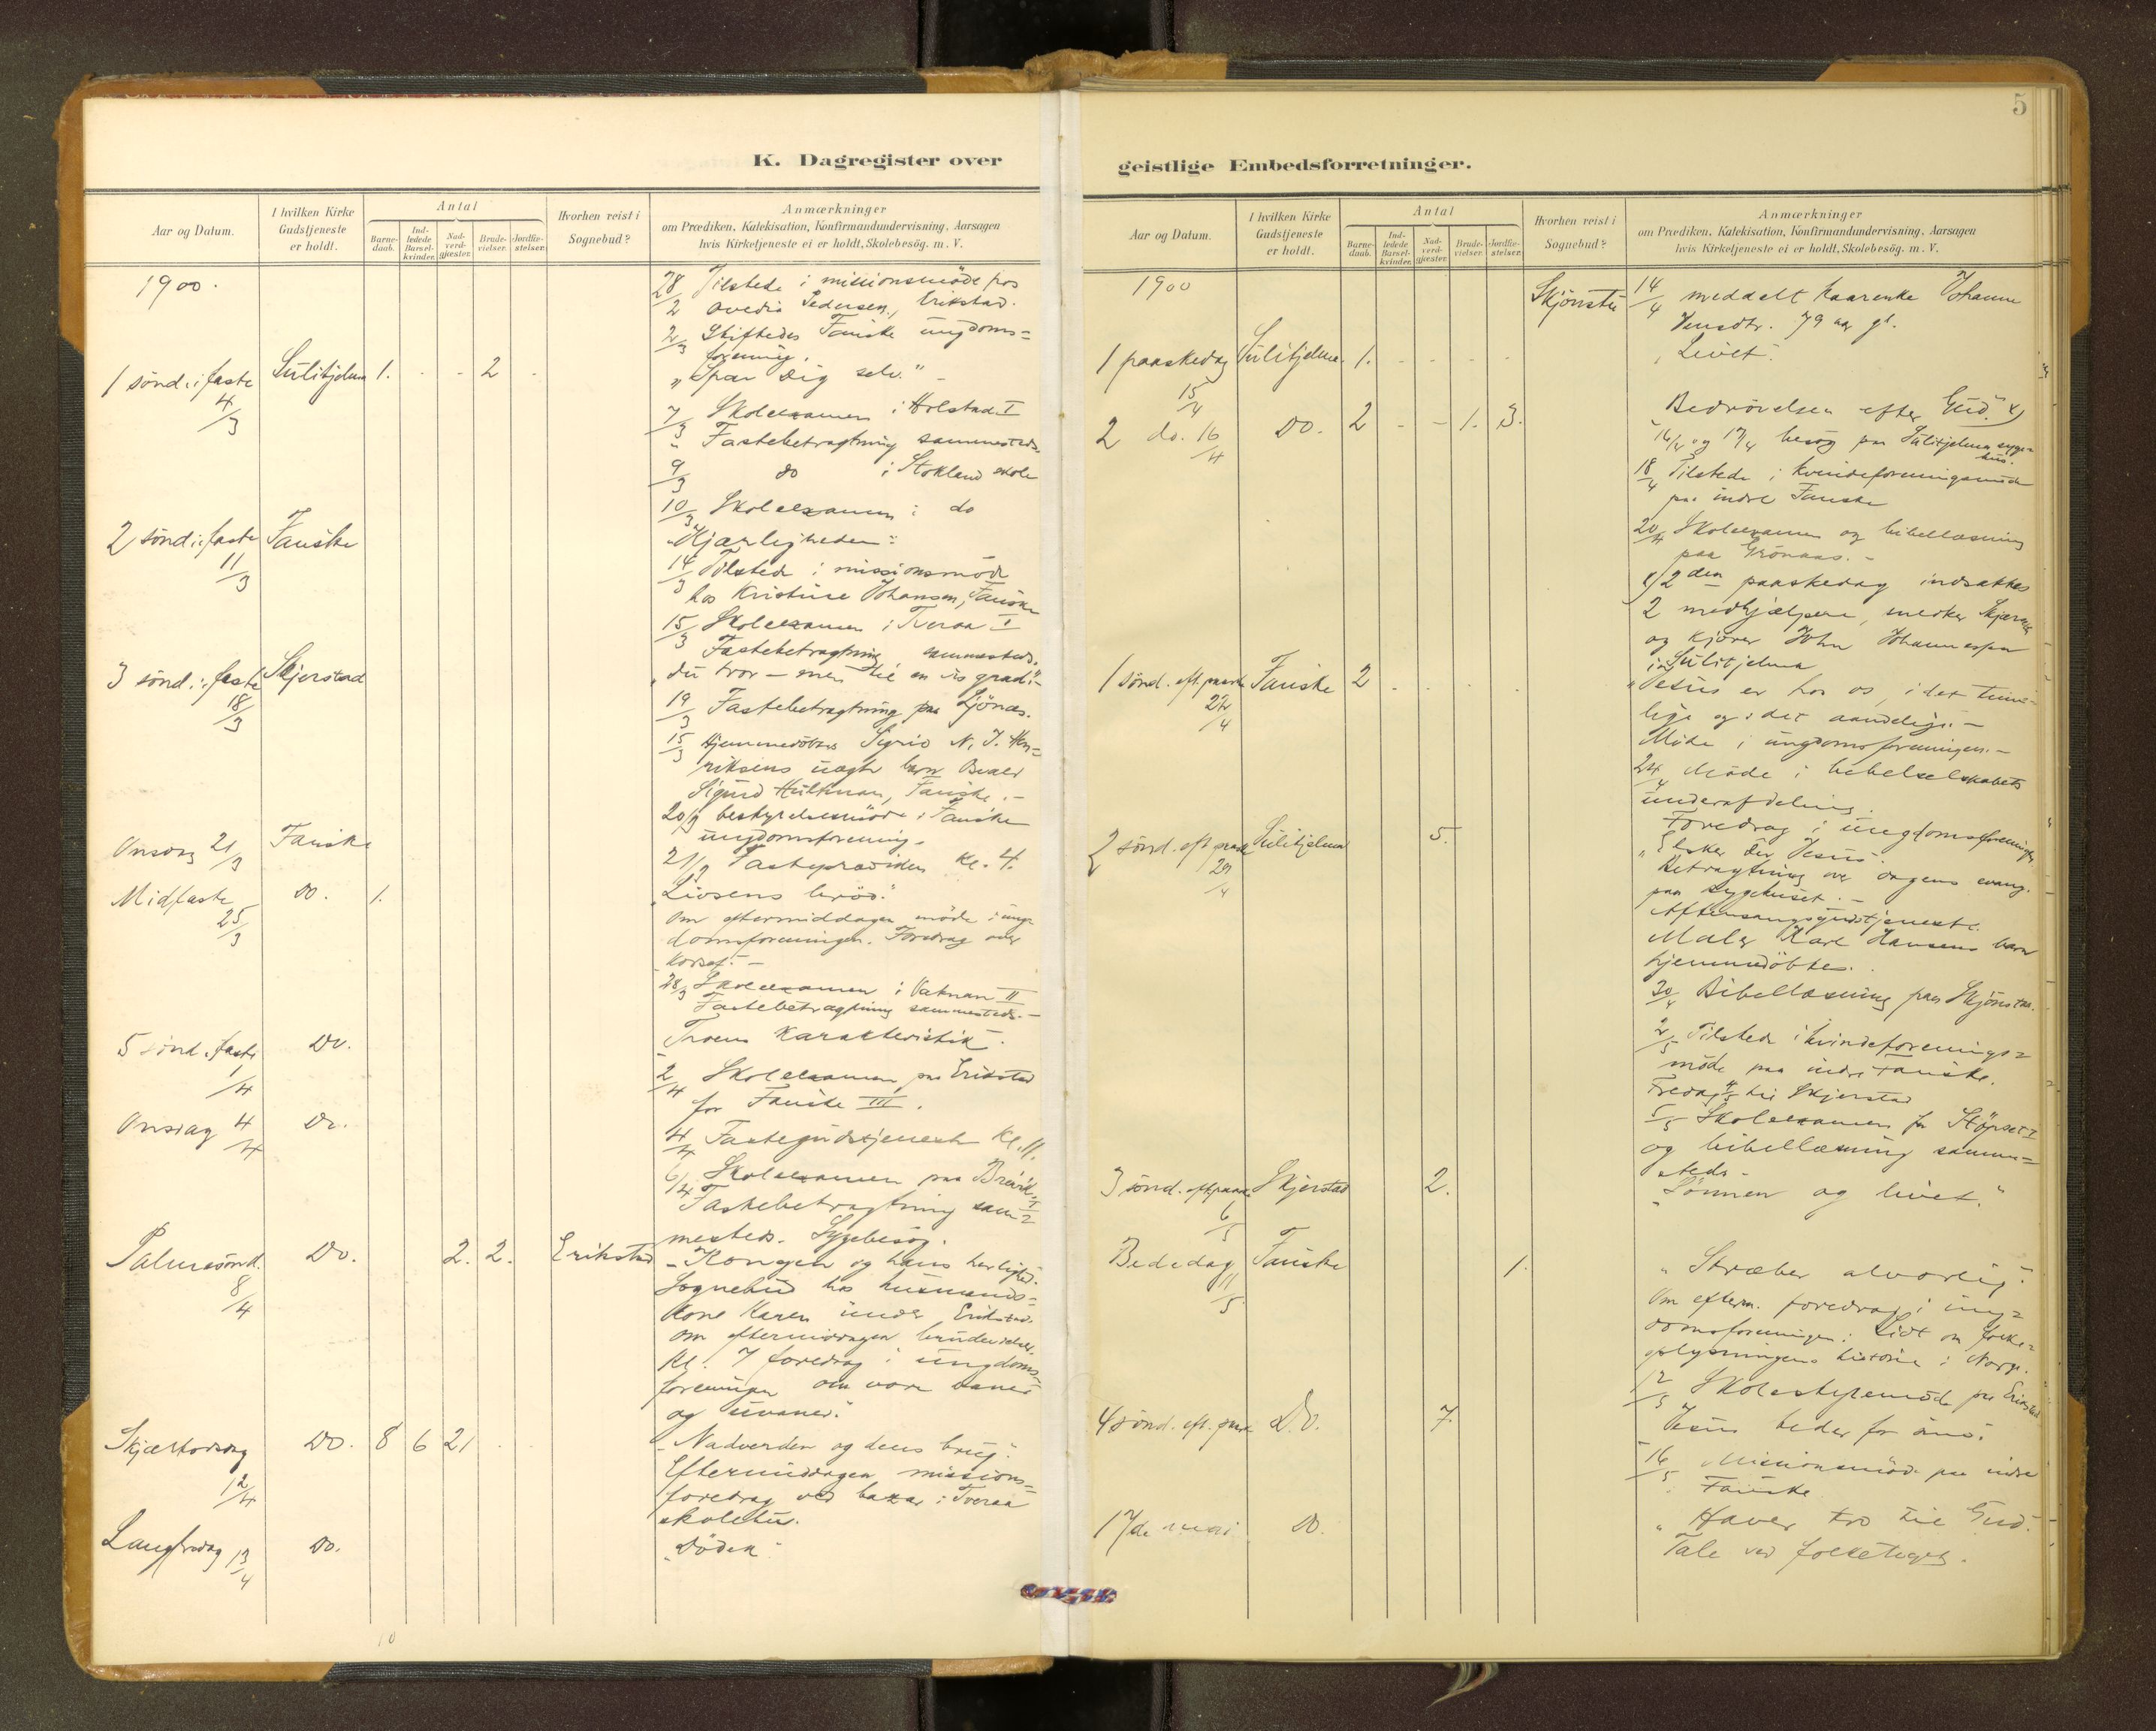 K. Dagregister over
Aar og Datum.
I hvilken Kirke Gudstjeneste er holdt.
Antal
Barnedaab.
Indledede Barselkvinder.
Nadverdgjæster.
Brudevielser.
Jordfæstelser.
Hvorhen reist i Sognebud?
Anmærkninger
om Prædiken, Katekisation, Konfirmandundervisning, Aarsagen
hvis Kirketjeneste ei er holdt, Skolebesög. m. V.
1900.
28/2 Tilstede i missionsmöde hos
Pedersen, Erikstad.
2/3 Stiftedes Fauske ungdoms=
forening.
1 sönd. i faste 4/3 Sulitjelma 1. - - 2 -
"Spar Dig selv." -
7/3 Skoleexamen i Holstad I
" Fastebetragtning sammesteds.
9/3 do i Stokland skole
10/3 Skoleexamen i do
2 sönd. i faste 11/3 Fauske
"Kjærligheden"
14/3 Tilstede i missionsmöde
hos Kristine Johansen, Fauske
15/3 Skoleexamen i Tveraa I
Fastebetragtning sammesteds.
3 sönd. i faste 18/3 Skjerstad
"du tror - men til en vis grad". -
19/3 Fastebetragtning paa Ljönes.
15/3 Hjemmedöbtes Sigrid N. J. Hen=
riksens uægte barn
Sigurd Hultman, Fauske. -
20/3 bestyrelsesmöde i Fauske
ungdomsforening.
Onsdag 21/3 Fauske
21/3 Fasteprædiken kl. 4.
Midfaste 25/3 Do. 1.
"Livsens bröd."
Om eftermiddagen möde i ung=
domsforeningen. Foredrag over
korset. -
28/3 Skoleexamen i Vatnan II
Fastebetragtning sammesteds. -
5 sönd. i faste 1/4 Do.
Troens karakteristik.
2/4 Skoleexamen paa Erikstad
for Fauske III.
Onsdag 4/4 Do.
4/4 Fastegudstjeneste kl. 11.
6/4 Skoleexamen paa Brevik I
Fastebetragtning sam=
mesteds. Sygebesög.
Palmesönd. 8/4 Do. 2. 2. Erikstad
"Kongen og hans herlighed."
Sognebud hos husmands=
kone Karen under Erikstad.
om eftermiddagen
Kl. 7 foredrag i ungdoms=
foreningen om vore vaner
og uvaner."
Skjærtorsdag 12/4 Do. 8 6 21 - -
"Nadverden og dens brug".
Eftermiddagen missions=
foredrag ved bazar i Tveraa
skolehus.
Langfredag 13/4 Do.
"Döden"
10
5
geistlige Embedsforretninger.
Aar og Datum.
I hvilken Kirke Gudstjeneste er holdt.
Antal
Barnedaab.
Indledede Barselkvinder.
Nadverdgjæster.
Brudevielser.
Jordfæstelser.
Hvorhen reist i Sognebud?
Anmærkninger
om Prædiken, Katekisation, Konfirmandundervisning, Aarsagen
hvis Kirketjeneste ei er holdt, Skolebesög. m. V.
1900
Skjönstu 14/4 meddelt kaarenke Johanne
Jensdtr. 79 aar gl.
1 paaskedag 15/4 Sulitjelma. 1. - - - -
"Livet".
2 do. 16/4 Do. 2 - - 1. 3.
Bedrövelsen efter Gud." x)
16/4 og 17/4 besög paa Sulitjelma syge=
hus.
18/4 Tilstede i kvindeforeningsmöde
paa indre Fauske
20/4 Skoleexamen og bibellæsning
paa Grönaas. -
x) 2den paaskedag indsattes
2 medhjælpere,
og kjører John Johannessen
i Sulitjelma
1 sönd. eft. paaske 22/4 Fauske 2 - - - -
"Jesus er hos os, i det time=
lige og i det aandelige. -
Möde i ungdomsforeningen. -
24/4 Möde i bibelselskabets
underafdeling.
Foredrag i ungdomsforeningen
2 sönd. eft. paaske 29/4 Sulitjelma 5.
"Elsker du Jesus".
Betragtning over dagens evang.
paa sygehuset. -
Aftensangsgudstjeneste.
Maler Karl Hansens barn
hjemmedöbtes.
30/4 Bibellæsning paa Skjönstu.
2/5 Tilstede i kvindeforenings=
möde paa indre Fauske.
Fredag 4/5 til Skjerstad
5/5 Skoleexamen for Støpset I
og bibellæsning samme=
steds -
3 sönd. eft. paaske 6/5 Skjerstad 2.
"Sönnen og livet."
Bededag 11/5 Fauske 1.
"Stræber alvorlig".
Om efterm. foredrag i ung=
domsforeningen: Lidt om folke=
oplysningens historie i Norge.
12/5 Skolestyremöde paa Erikstad
4 sönd. eft. paaske Do. 7.
Jesus beder for sine.
16/5 Missionsmöde paa indre
Fauske
17de mai Do.
"Haver tro til Gud."
Tale ved folketoget.